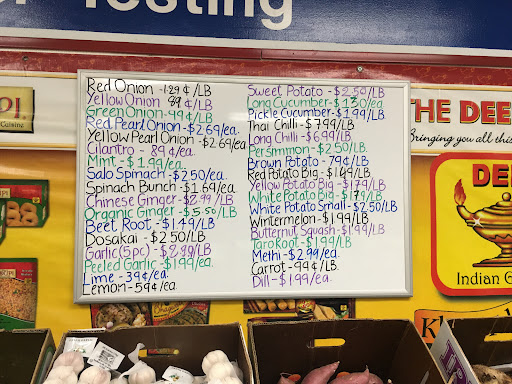 r Testing
Red Onion -1.29¢/LB
Yellow Onion 89¢/LB
Green Onion - 99¢/LB
Red Pearl Onion - $2.69/ea.
Yellow Pearl Onion - $2.69/ea.
Cilantro - 89¢/ea.
Mint - $1.99/ea.
Salo Spinach - $2.50/ea.
Spinach Bunch - $1.69/ea.
Chinese Ginger - $2.99/LB
Organic Ginger - $5.50/LB
Beet Root - $1.49/LB
Dosakai - $2.50/LB
Garlic (5pc) - $2.99/LB
Peeled Garlic - $1.99/ea.
Lime - 39¢/ea.
Lemon - 59¢/ea.
Sweet Potato - $2.50/LB
Long Cucumber - $1.30/ea
Pickle Cucumber - $1.99/LB
Thai Chilli - $7.99/LB
Long Chilli - $6.99/LB
Persimmon - $2.50/LB
Brown Potato - 79¢/LB
Red Potato Big - $1.99/LB
Yellow Potato Big - $1.79/LB
White Potato Big - $1.79/LB
White Potato Small - $2.50/LB
Wintermelon - $1.99/LB
Butternut Squash - $1.99/LB
Taro Root - $1.99/LB
Methi - $2.99/ea.
Carrot - 99¢/LB
Dill - $1.99/ea.
THE DEE
Bringing you all this
DE
Indian G